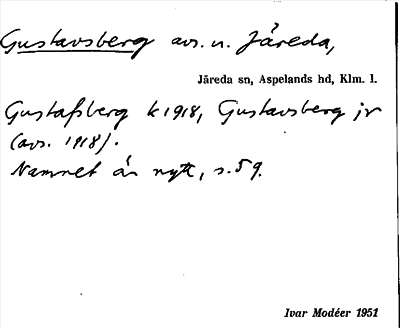 Gustavsberg avs. u. Järeda,
Järeda sn, Aspelands hd, Klm. l.
Gustafsberg k 1918, Gustavsberg jr
(avs. 1918).
Namnet är nytt, s. 59.
Ivar Modéer 1951